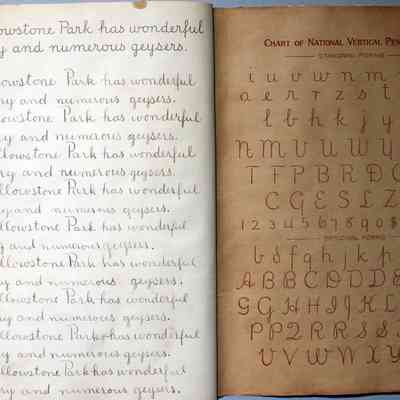 owstone Park has wonderful
y and numerous geysers.
lowstone Park has wonderful
ry and numerous geysers.
owstone Park has wonderful
y and numerous geysers.
llowstone Park has wonderful
ry and numerous geysers.
llowstone Park has wonderful
ry and numerous geysers.
llowstone Park has wonderful
y and numerous geysers.
llowstone Park has wonderful
y and numerous geysers.
llowstone Park has wonderful
ry and numerous geysers.
llowstone Park has wonderful
y and numerous geysers.
llowstone Park has wonderful
ry and numerous geysers.
CHART OF NATIONAL VERTICAL PEN
STANDARD FORMS
i u v w n m
a e r r z s t
l b h k j y
N M V U W Y
T F P B R D
C G E S L Z
1 2 3 4 5 6 7 8 9 0 $
OPTIONAL FORMS
b d f g h j k p
A B B C D D E
G G H H I J K L
P P 2 R R S S
U V W W X Y